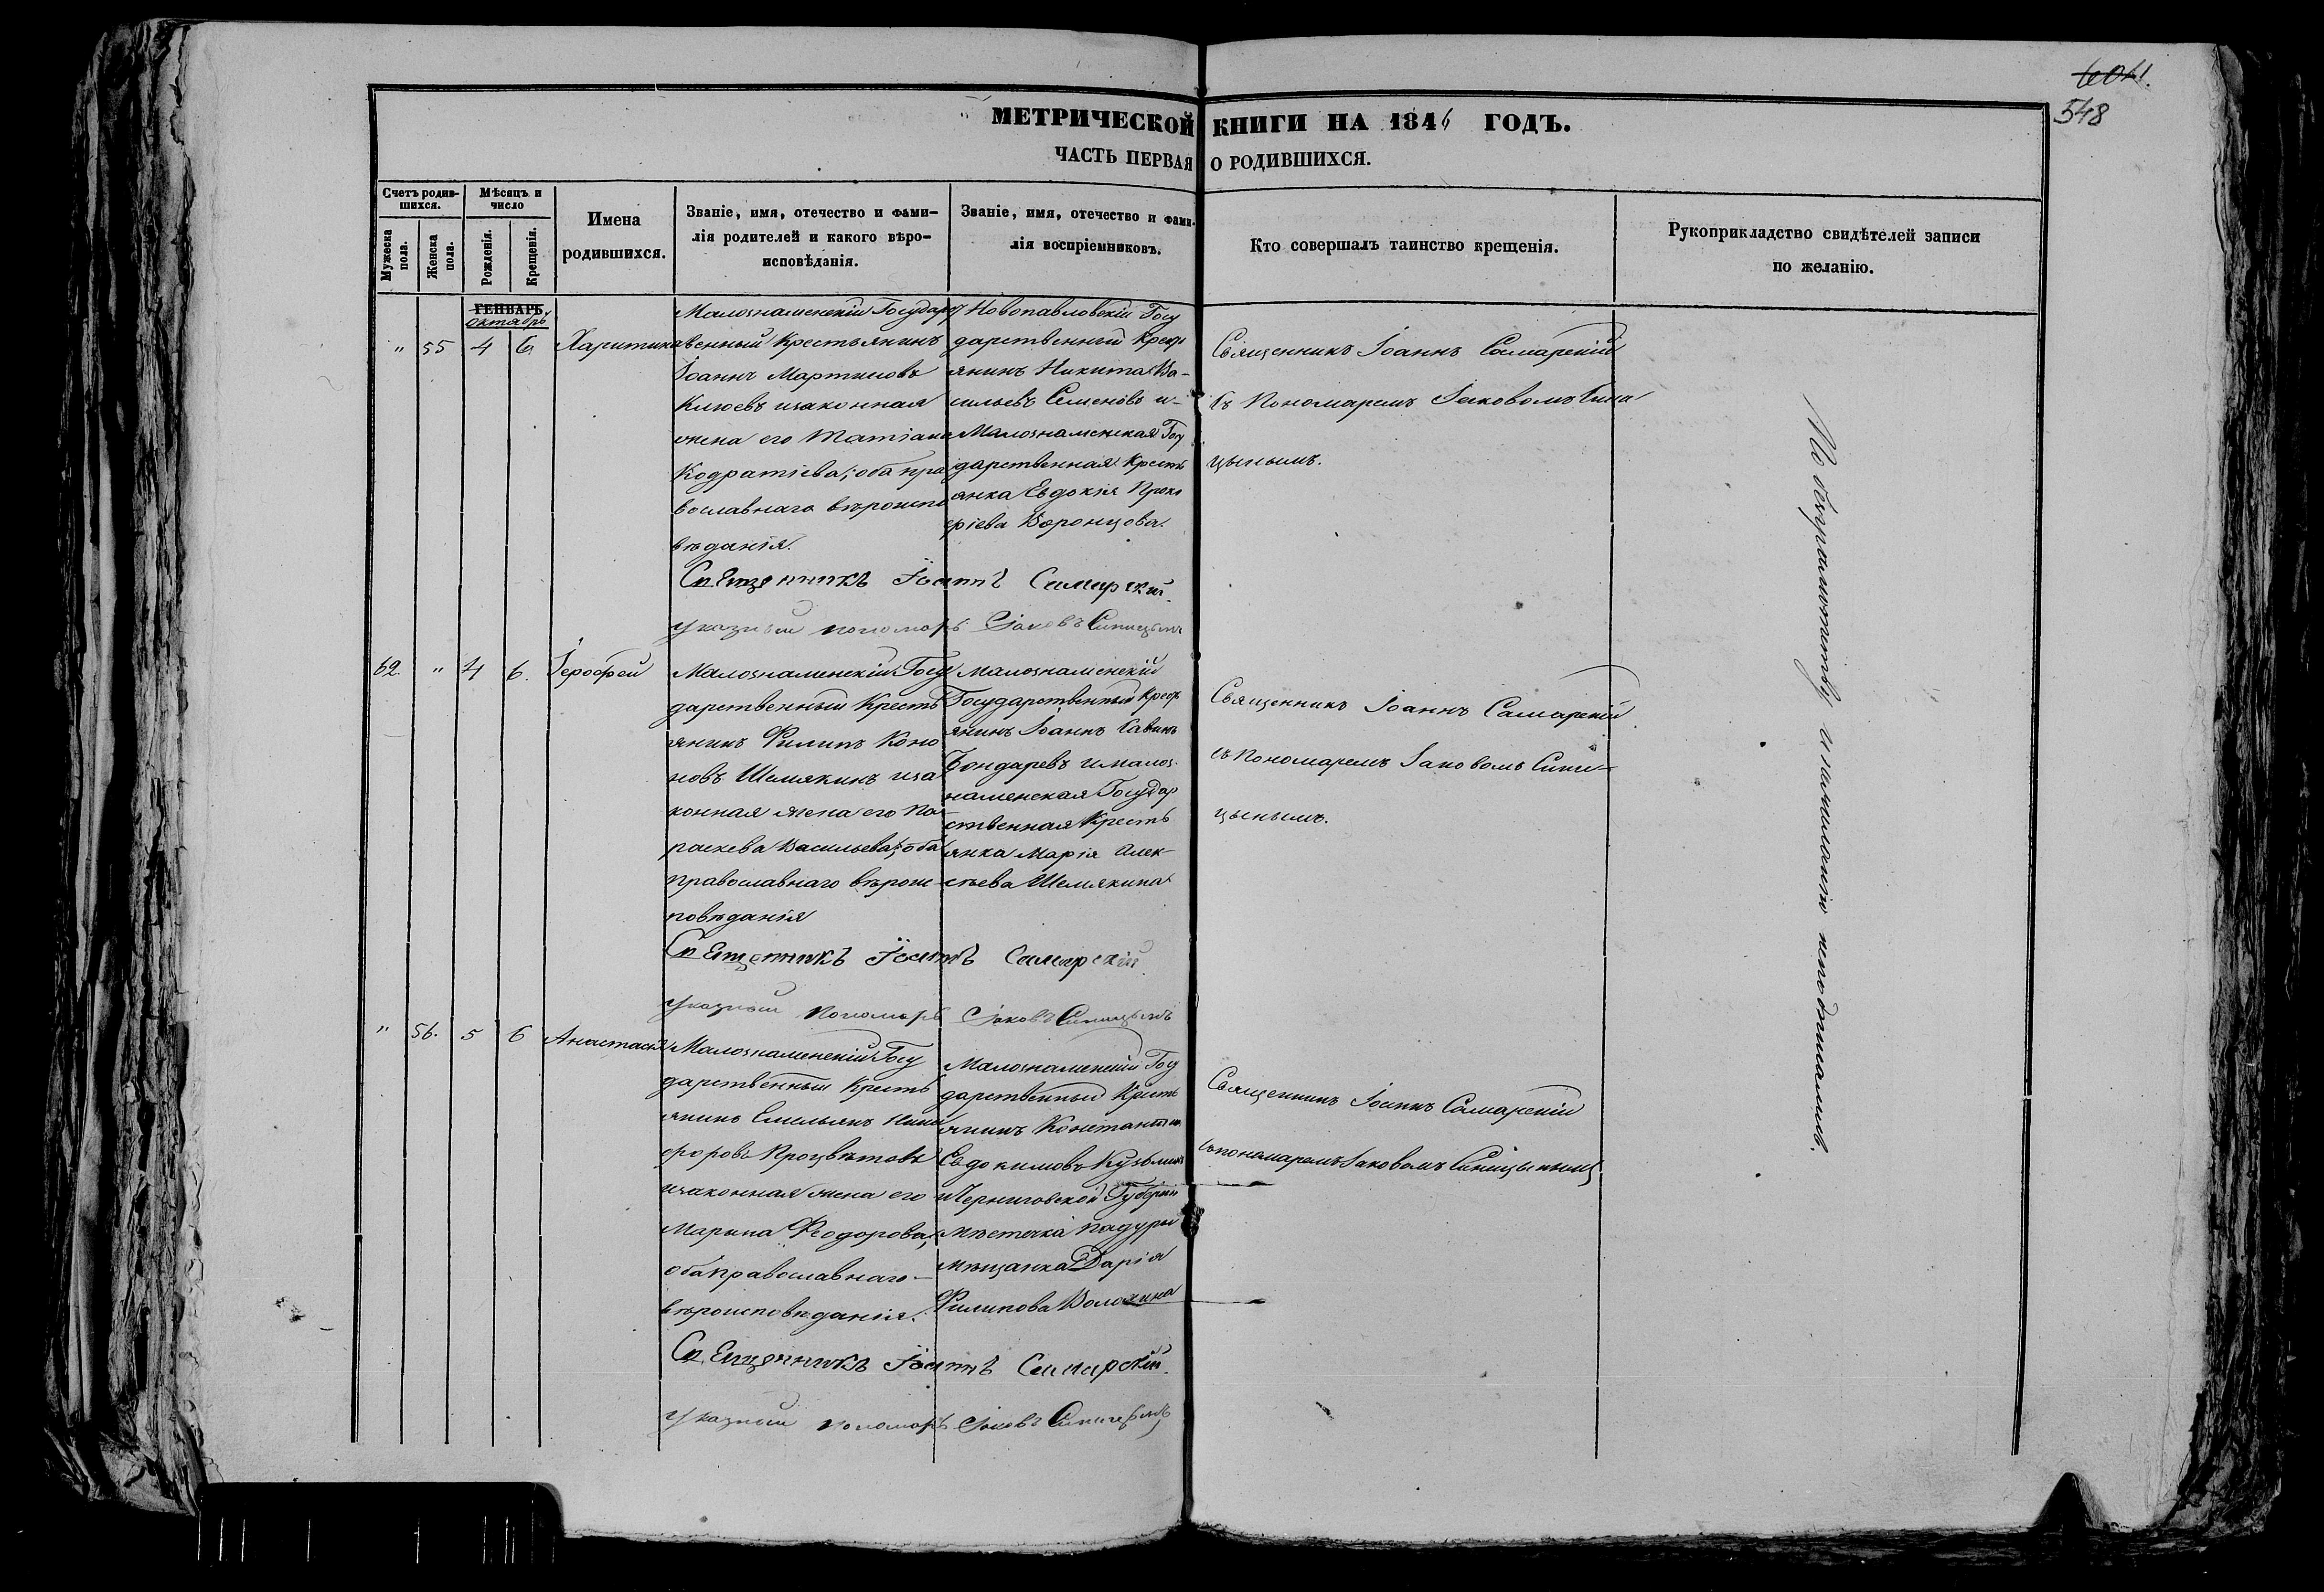 604.
548
МЕТРИЧЕСКОЙ КНИГИ НА 1846 ГОДЪ.
ЧАСТЬ ПЕРВАЯ О РОДИВШИХСЯ.
Счетъ родив-
шихся.
Мужеска
пола.
Женска
пола.
Мѣсяцъ и
число
Рожденія.
Крещенія.
Имена
родившихся.
Званіе, имя, отечество и фами-
лія родителей и какого вѣро-
исповѣданія.
Званіе, имя, отечество и фами-
лія воспріемниковъ.
Кто совершалъ таинство крещенія.
Рукоприкладство свидѣтелей записи
по желанію.
ГЕНВАРЬ
октябрь
" 55 4 6 Харитина
Малознаменскій Государст
венный Крестьянинъ
Іоаннъ Мартиновъ
Клюевъ изаконная
жена его Татіана
Кодратіева; оба пра
вославнаго вѣроиспо
вѣданія.
Новопавловскій Госу
дарственный Крест
янинъ Никита Ва-
сильевъ Семеновъ и-
Малознаменская Госу
дарственная Кресть
янка Евдокія Проко
фіева Воронцова
Священникъ Іоаннъ Самарскій
съ Пономаремъ Іаковомъ Сини
цынымъ.
Священникъ Іоаннъ Самарскій.
Указный пономарь Іаковъ Синицынъ
62. " 4 6. Іерофей
Малознаменскій Госу
дарственный Кресть
янинъ Филипъ Коно
новъ Шемякинъ иза
конная жена его Па-
раскева Васильева; оба
православнаго вѣроис-
повѣданія
Малознаменскій
Государственный Крест
янинъ Іоаннъ Савинъ
Бондаревъ ималоз-
наменская Государ
ственная Кресть
янка Марія Алек-
сѣева Шемякина
Священникъ Іоаннъ Самарскій.
съ Пономаремъ Іаковомъ Сини-
цынымъ.
Священникъ Іоаннъ Самарскій.
Указный пономарь Іаковъ Синицынъ
" 56. 5 6 Анастасія
Малознаменскій Госу
дарственный Кресть
янинъ Емельянъ Ники
форовъ Процвѣтовъ
изаконная жена его
Марина Феодорова;
оба православнаго-
вѣроисповѣданія.
Малознаменскій Госу
дарственный Кресть
янинъ Константинъ
Евдокимовъ Кузьминъ
иЧерниговской Губерніи
мѣстечка
мѣщанка Дарія
Филипова Волохина
Священникъ Іоаннъ Самарскій
съ пономаремъ Іаковомъ Синицынымъ
Священникъ Іоаннъ Самарскій.
Указный пономарь Іаковъ Синицынъ
По безграмотству и нежеланію неподписались.